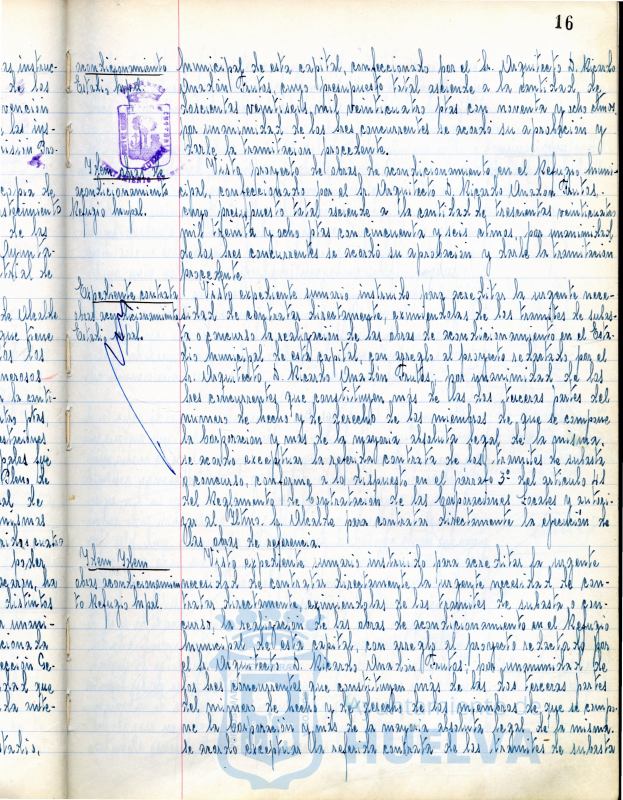 16
acondicionamiento
Estadio mpal.
municipal de esta capital, confeccionado por el Sr. Arquitecto D. Ricardo
Anadón Frutos, cuyo presupuesto total asciende a la cantidad de
doscientas veintiseis mil veinticuatro ptas con noventa y ocho ctmos,
por unanimidad de los tres concurrentes se acordó su aprobación y
darle la tramitación procedente.
Idem obras de
acondicionamiento
Refugio mupal.
Visto proyecto de obras de acondicionamiento en el Refugio Muni-
cipal, confeccionado por el Sr. Arquitecto D. Ricardo Anadón Frutos,
cuyo presupuesto total asciende a la cantidad de trescientas veinticuatro
mil treinta y ocho ptas con cincuenta y seis ctmos, por unanimidad
de los tres concurrentes se acordó su aprobación y darle la tramitación
procedente.
Expediente contrata
obras acondicionamiento
Estadio mpal.
Visto expediente sumario instruido para acreditar la urgente nece-
sidad de contratar directamente, eximiendolas de los tramites de subas-
ta o concurso la realización de las obras de acondicionamiento en el Esta-
dio Municipal de esta capital, con arreglo al proyecto redactado por el
Sr. Arquitecto D. Ricardo Anadón Frutos, por unanimidad de los
tres concurrentes que constituyen más de las dos terceras partes del
número de hecho y de derecho de los miembros de que se compone
la Corporación y más de la mayoria absoluta legal de la misma,
se acordó exceptuar la referida contrata de los tramites de subasta
y concurso, conforme a lo dispuesto en el párrafo 3º del articulo 41
del Reglamento de Contratación de las Corporaciones Locales y autori-
zar al Iltmo. Sr. Alcalde para contratar directamente la ejecución de
las obras de referencia.
Idem Idem
obras acondicionamien
to Refugio mpal.
Visto expediente sumario instruido para acreditar la urgente
necesidad de contratar directamente la urgente necesidad de con-
tratar directamente eximiendolas de los tramites de subasta o con-
curso, la realización de las obras de acondicionamiento en el Refugio
Municipal de esta capital, con arreglo al proyecto redactado por
el Sr. Arquitecto D. Ricardo Anadón Frutos, por unanimidad de
los tres concurrentes que constituyen más de las dos terceras partes
del número de hecho y de derecho de los miembros de que se compo-
ne la Corporación y más de la mayoria absoluta legal de la misma,
se acordó exceptuar la referida contrata de los tramites de subasta
HUELVA